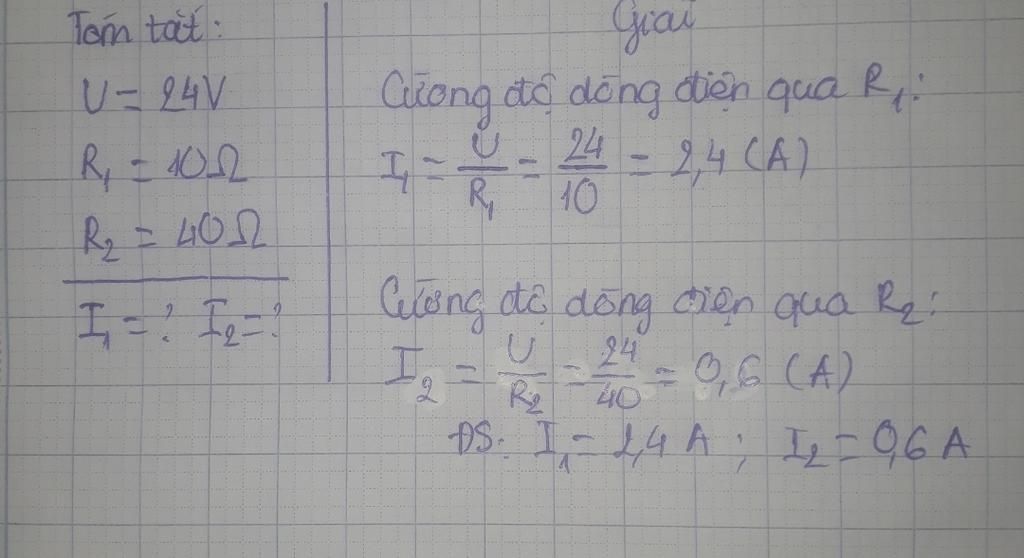 Tóm tắt:
U = 24V
R₁ = 10Ω
R₂ = 40Ω
I₁ = ? I₂ = ?
Giải
Cường độ dòng điện qua R₁:
I₁ = U/R₁ = 24/10 = 2,4 (A)
Cường độ dòng điện qua R₂:
I₂ = U/R₂ = 24/40 = 0,6 (A)
ĐS: I₁ = 2,4 A ; I₂ = 0,6 A